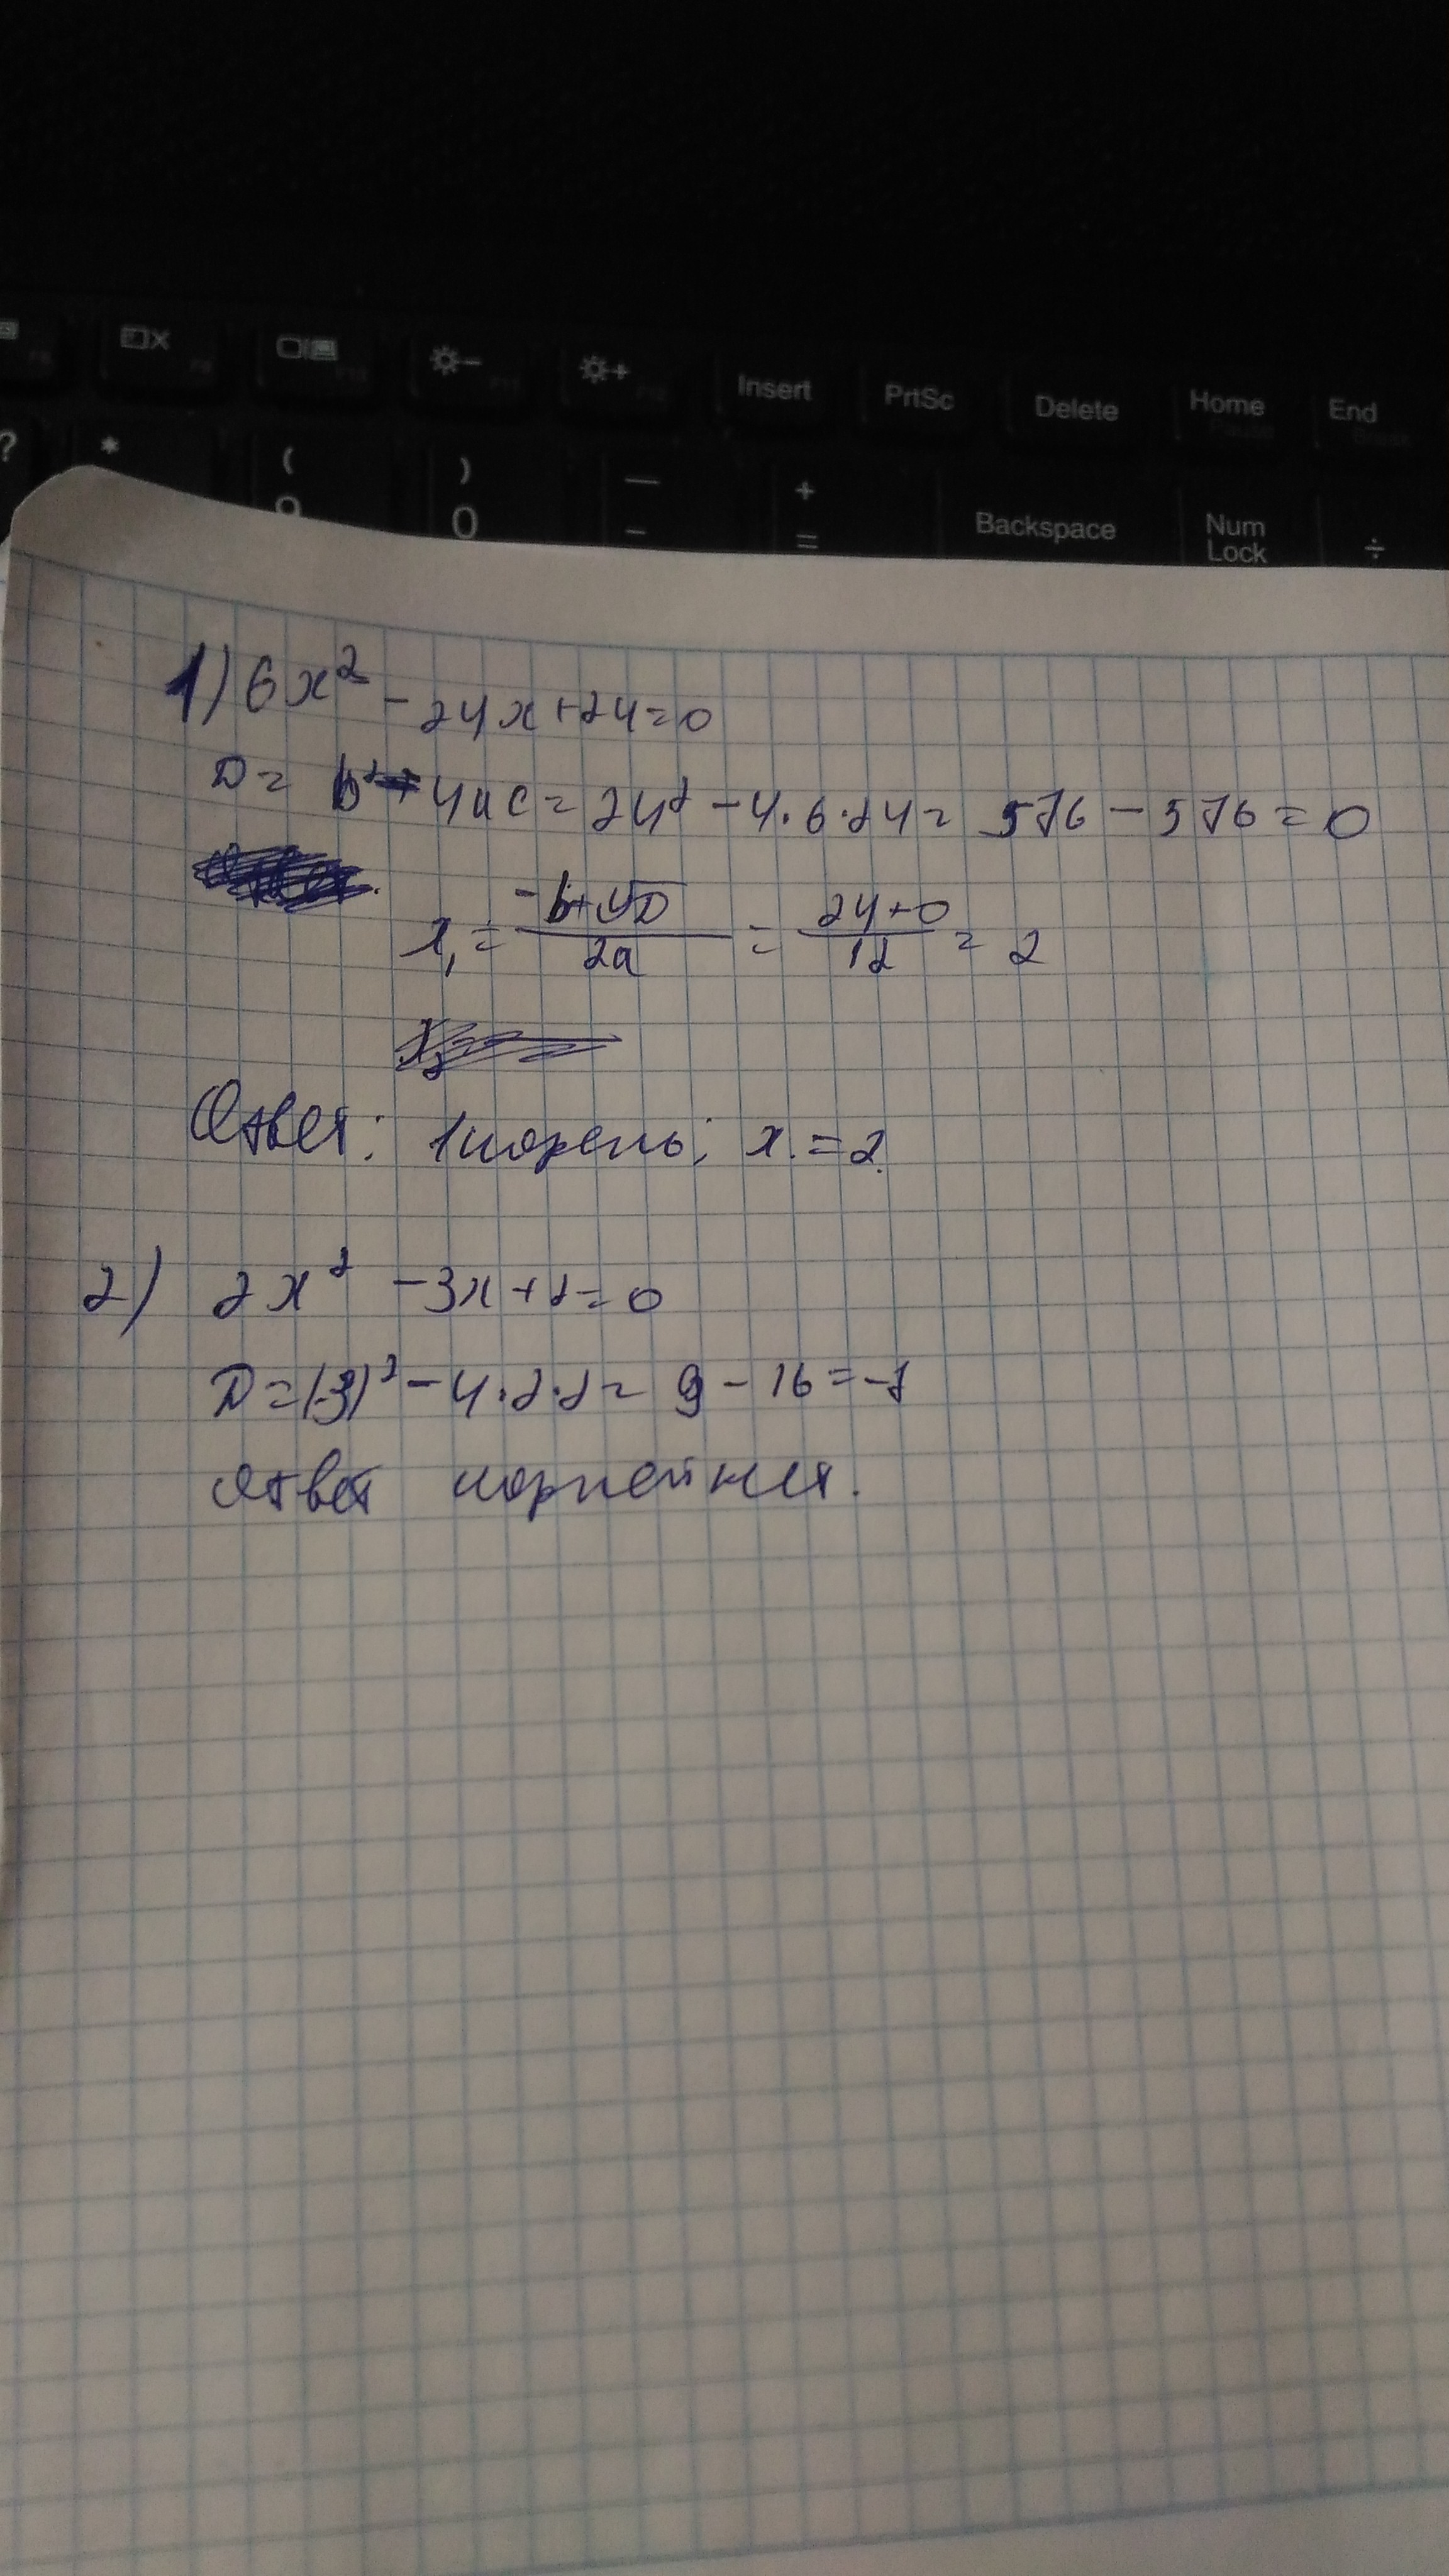 Insert PrtSc Delete Home End
? * ( ) — + 
9 0 - = Backspace Num Lock ÷
1) 6x² - 24x + 24 = 0
D = b² - 4ac = 24² - 4·6·24 = 576 - 576 = 0
x₁ = (-b+√D)/2a = (24+0)/12 = 2
Ответ: 1 корень; x = 2.
2) 2x² - 3x + 2 = 0
D = (-3)² - 4·2·2 = 9 - 16 = -7
Ответ корней нет.